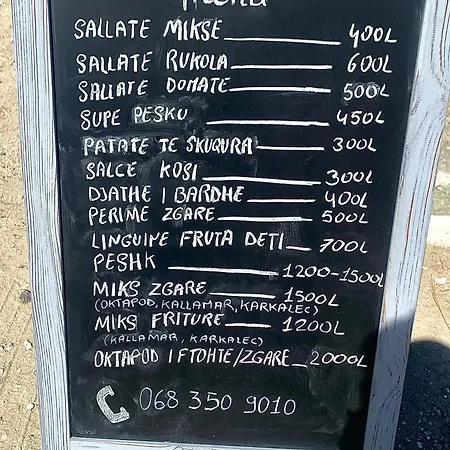 Menu
SALLATE MIKSE 400L
SALLATE RUKOLA 600L
SALLATE DOMATE 500L
SUPE PESKU 450L
PATATE TE SKUQURA 300L
SALCE KOSI 300L
DJATHE I BARDHE 400L
PERIME ZGARE 500L
LINGUINE FRUTA DETI 700L
PESHK 1200-1500L
MIKS ZGARE 1500L
(OKTAPOD, KALLAMAR, KARKALEC)
MIKS FRITURE 1200L
(KALLAMAR, KARKALEC)
OKTAPOD I FTOHTE/ZGARE 2000L
068 350 9010